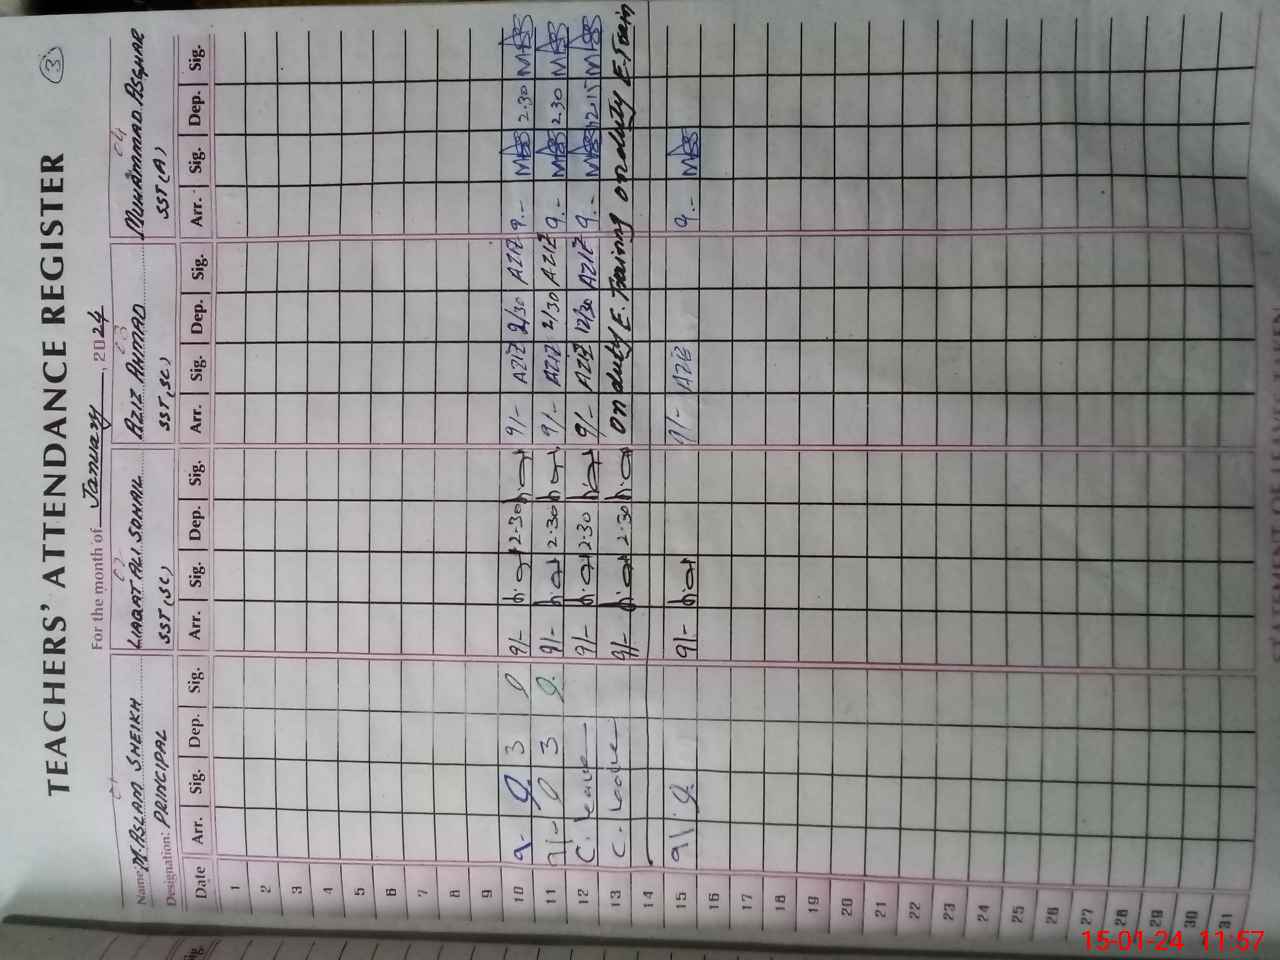 3
TEACHERS' ATTENDANCE REGISTER
For the month of January, 2024
Name: M. ASLAM SHEIKH LIAQAT ALI SOHAIL AZIZ AHMAD MUHAMMAD ASGHAR
Designation: PRINCIPAL SST(SC) SST(SC) SST(A)
Date Arr. Sig. Dep. Sig. Arr. Sig. Dep. Sig. Arr. Sig. Dep. Sig. Arr. Sig. Dep. Sig.
1
2
3
4
5
6
7
8
9
10 9- 3 9/- 2.30 9/- AZIZ 2/30 AZIZ 9.- 2.30
11 9/- 3 9/- 2.30 9/- AZIZ 2/30 AZIZ 9.- 2.30
12 C. leave 9/- 2.30 9/- AZIZ 12/30 AZIZ 9.- 12.15
13 C. leave 9/- 2.30 on duty E. Training on duty E. Train
14
15 9/- 9/- 9/- AZIZ 9.-
16
17
18
19
20
21
22
23
24
25
26
27
28
29
30
31
Sig.
15-01-24 11:57